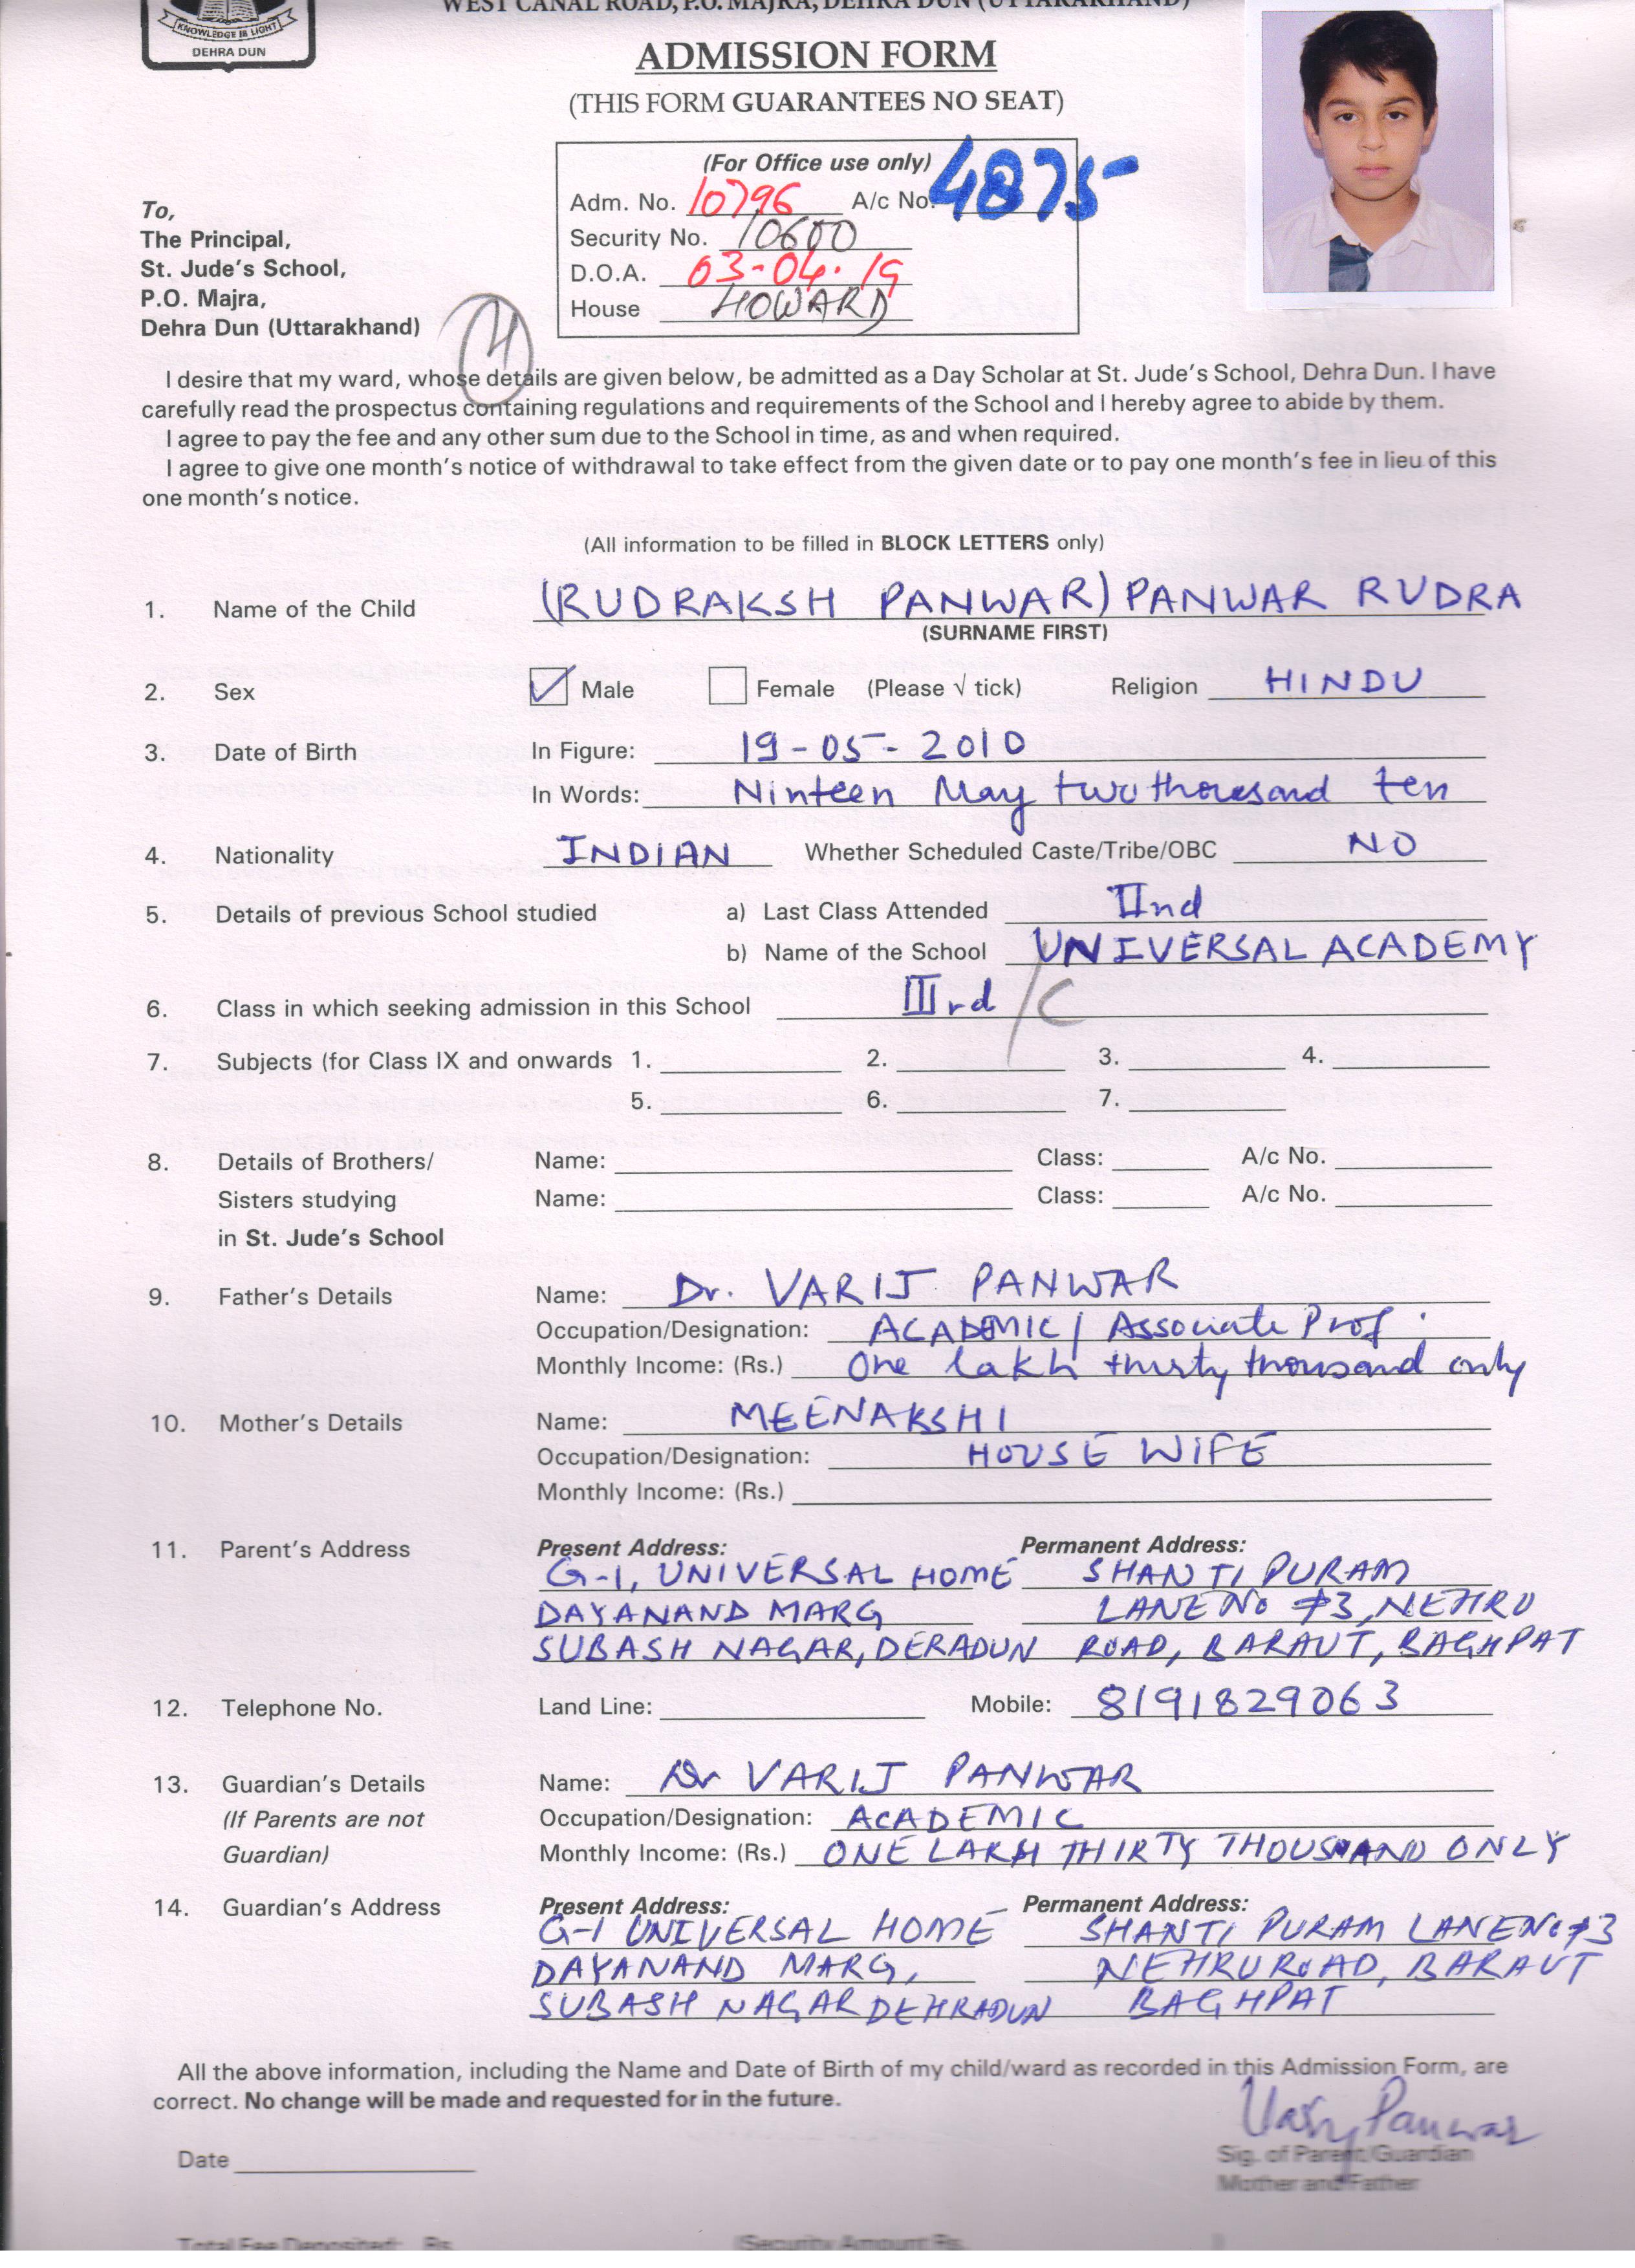 WEST CANAL ROAD, P.O. MAJRA, DEHRA DUN (UTTARAKHAND)
KNOWLEDGE IS LIGHT
DEHRA DUN
ADMISSION FORM
(THIS FORM GUARANTEES NO SEAT)
(For Office use only)
Adm. No. 10796 A/c No. 4875
Security No. 10600
D.O.A. 03-04-19
House HOWARD
To,
The Principal,
St. Jude's School,
P.O. Majra,
Dehra Dun (Uttarakhand)
I desire that my ward, whose details are given below, be admitted as a Day Scholar at St. Jude's School, Dehra Dun. I have
carefully read the prospectus containing regulations and requirements of the School and I hereby agree to abide by them.
I agree to pay the fee and any other sum due to the School in time, as and when required.
I agree to give one month's notice of withdrawal to take effect from the given date or to pay one month's fee in lieu of this
one month's notice.
(All information to be filled in BLOCK LETTERS only)
1. Name of the Child (RUDRAKSH PANWAR) PANWAR RUDRA
(SURNAME FIRST)
2. Sex ✓ Male Female (Please √ tick) Religion HINDU
3. Date of Birth In Figure: 19-05-2010
In Words: Ninteen May two thousand ten
4. Nationality INDIAN Whether Scheduled Caste/Tribe/OBC NO
5. Details of previous School studied a) Last Class Attended IInd
b) Name of the School UNIVERSAL ACADEMY
6. Class in which seeking admission in this School IIIrd / C
7. Subjects (for Class IX and onwards 1. 2. 3. 4.
5. 6. 7.
8. Details of Brothers/ Name: Class: A/c No.
Sisters studying Name: Class: A/c No.
in St. Jude's School
9. Father's Details Name: Dr. VARIJ PANWAR
Occupation/Designation: ACADEMIC / Associate Prof.
Monthly Income: (Rs.) One lakh thirty thousand only
10. Mother's Details Name: MEENAKSHI
Occupation/Designation: HOUSE WIFE
Monthly Income: (Rs.)
11. Parent's Address Present Address: Permanent Address:
G-1, UNIVERSAL HOME SHANTI PURAM
DAYANAND MARG LANE NO #3, NEHRU
SUBASH NAGAR, DERADUN ROAD, BARAUT, BAGHPAT
12. Telephone No. Land Line: Mobile: 8191829063
13. Guardian's Details Name: Dr VARIJ PANWAR
(If Parents are not Occupation/Designation: ACADEMIC
Guardian) Monthly Income: (Rs.) ONE LAKH THIRTY THOUSAND ONLY
14. Guardian's Address Present Address: Permanent Address:
G-1 UNIVERSAL HOME SHANTI PURAM LANE NO #3
DAYANAND MARG, NEHRU ROAD, BARAUT
SUBASH NAGAR DEHRADUN BAGHPAT
All the above information, including the Name and Date of Birth of my child/ward as recorded in this Admission Form, are
correct. No change will be made and requested for in the future.
Varij Panwar
Date Sig. of Parent/Guardian
Mother and Father
Total Fee Deposited: Rs. (Security Amount Rs.